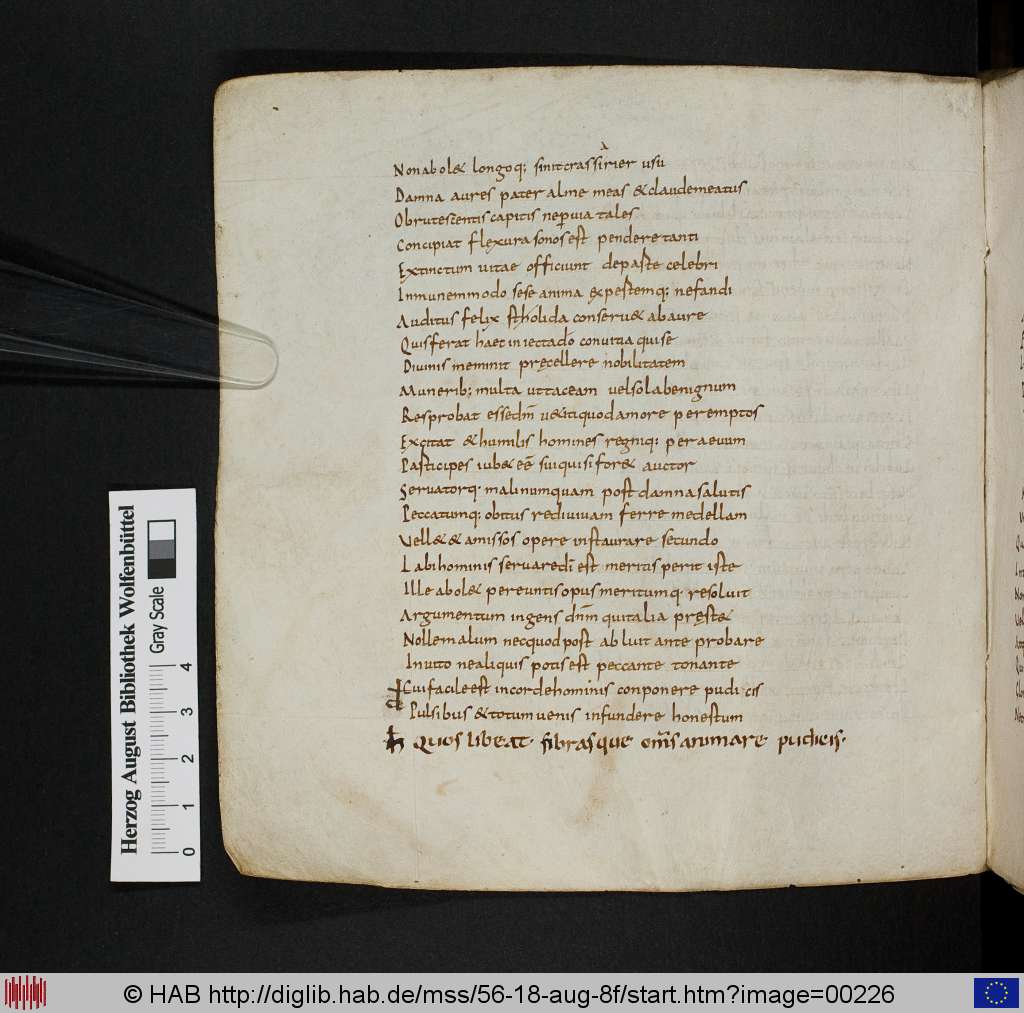 Non abol& longoq; sinit crassirier usu
Damna aures pater alme meas & claude meatus
Obrutescentis capitis ne pervia tales
Concipiat flexura sonos est pendere tanti
Extinctum vitae officiunt depaste celebri
Inmunem modo sese anima expestemq; nefandi
Auditus felix stholida conseru& ab aure
Quis ferat haec iniectado convitia qui se
Divinis meminit pręcellere nobilitatem
Munerib; multa ut taceam vel sola benignum
Res probat esse dm̄ veniti quod amore peremptos
Excitat & humilis homines regniq; per aevum
Participes iub& eē sui quis i foret auctor
Servatorq; mali numquam post damna salutis
Peccatumq; obitus redivivam ferre medellam
Vell& & amissos opere instaurare secundo
Labi hominis servare dī est meritis perit iste
Ille abol& pereuntis opus meritumq; resolvit
Argumentum ingens dnm̄ qui talia pręstet
Nolle malum nec quod post abluit ante probare
Invito ne aliquis potis est peccante tonante
Cui facile est in corde hominis conponere pudicis
Pulsibus & totum venis infundere honestum
h Quos libeat. fibrasque om̄s animare pudicis.
Herzog August Bibliothek Wolfenbüttel
Gray Scale
0 1 2 3 4
© HAB http://diglib.hab.de/mss/56-18-aug-8f/start.htm?image=00226